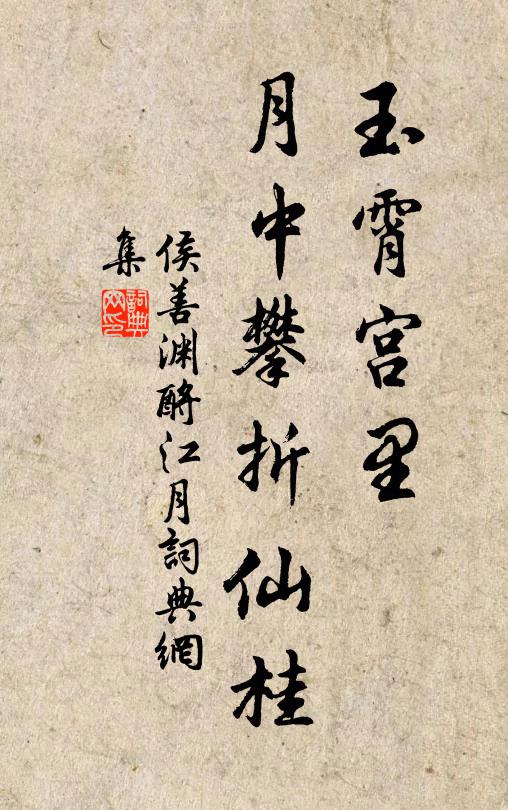 玉霄宫里
月中攀折仙桂
侯善渊酹江月詞典網
集
詞典
网印